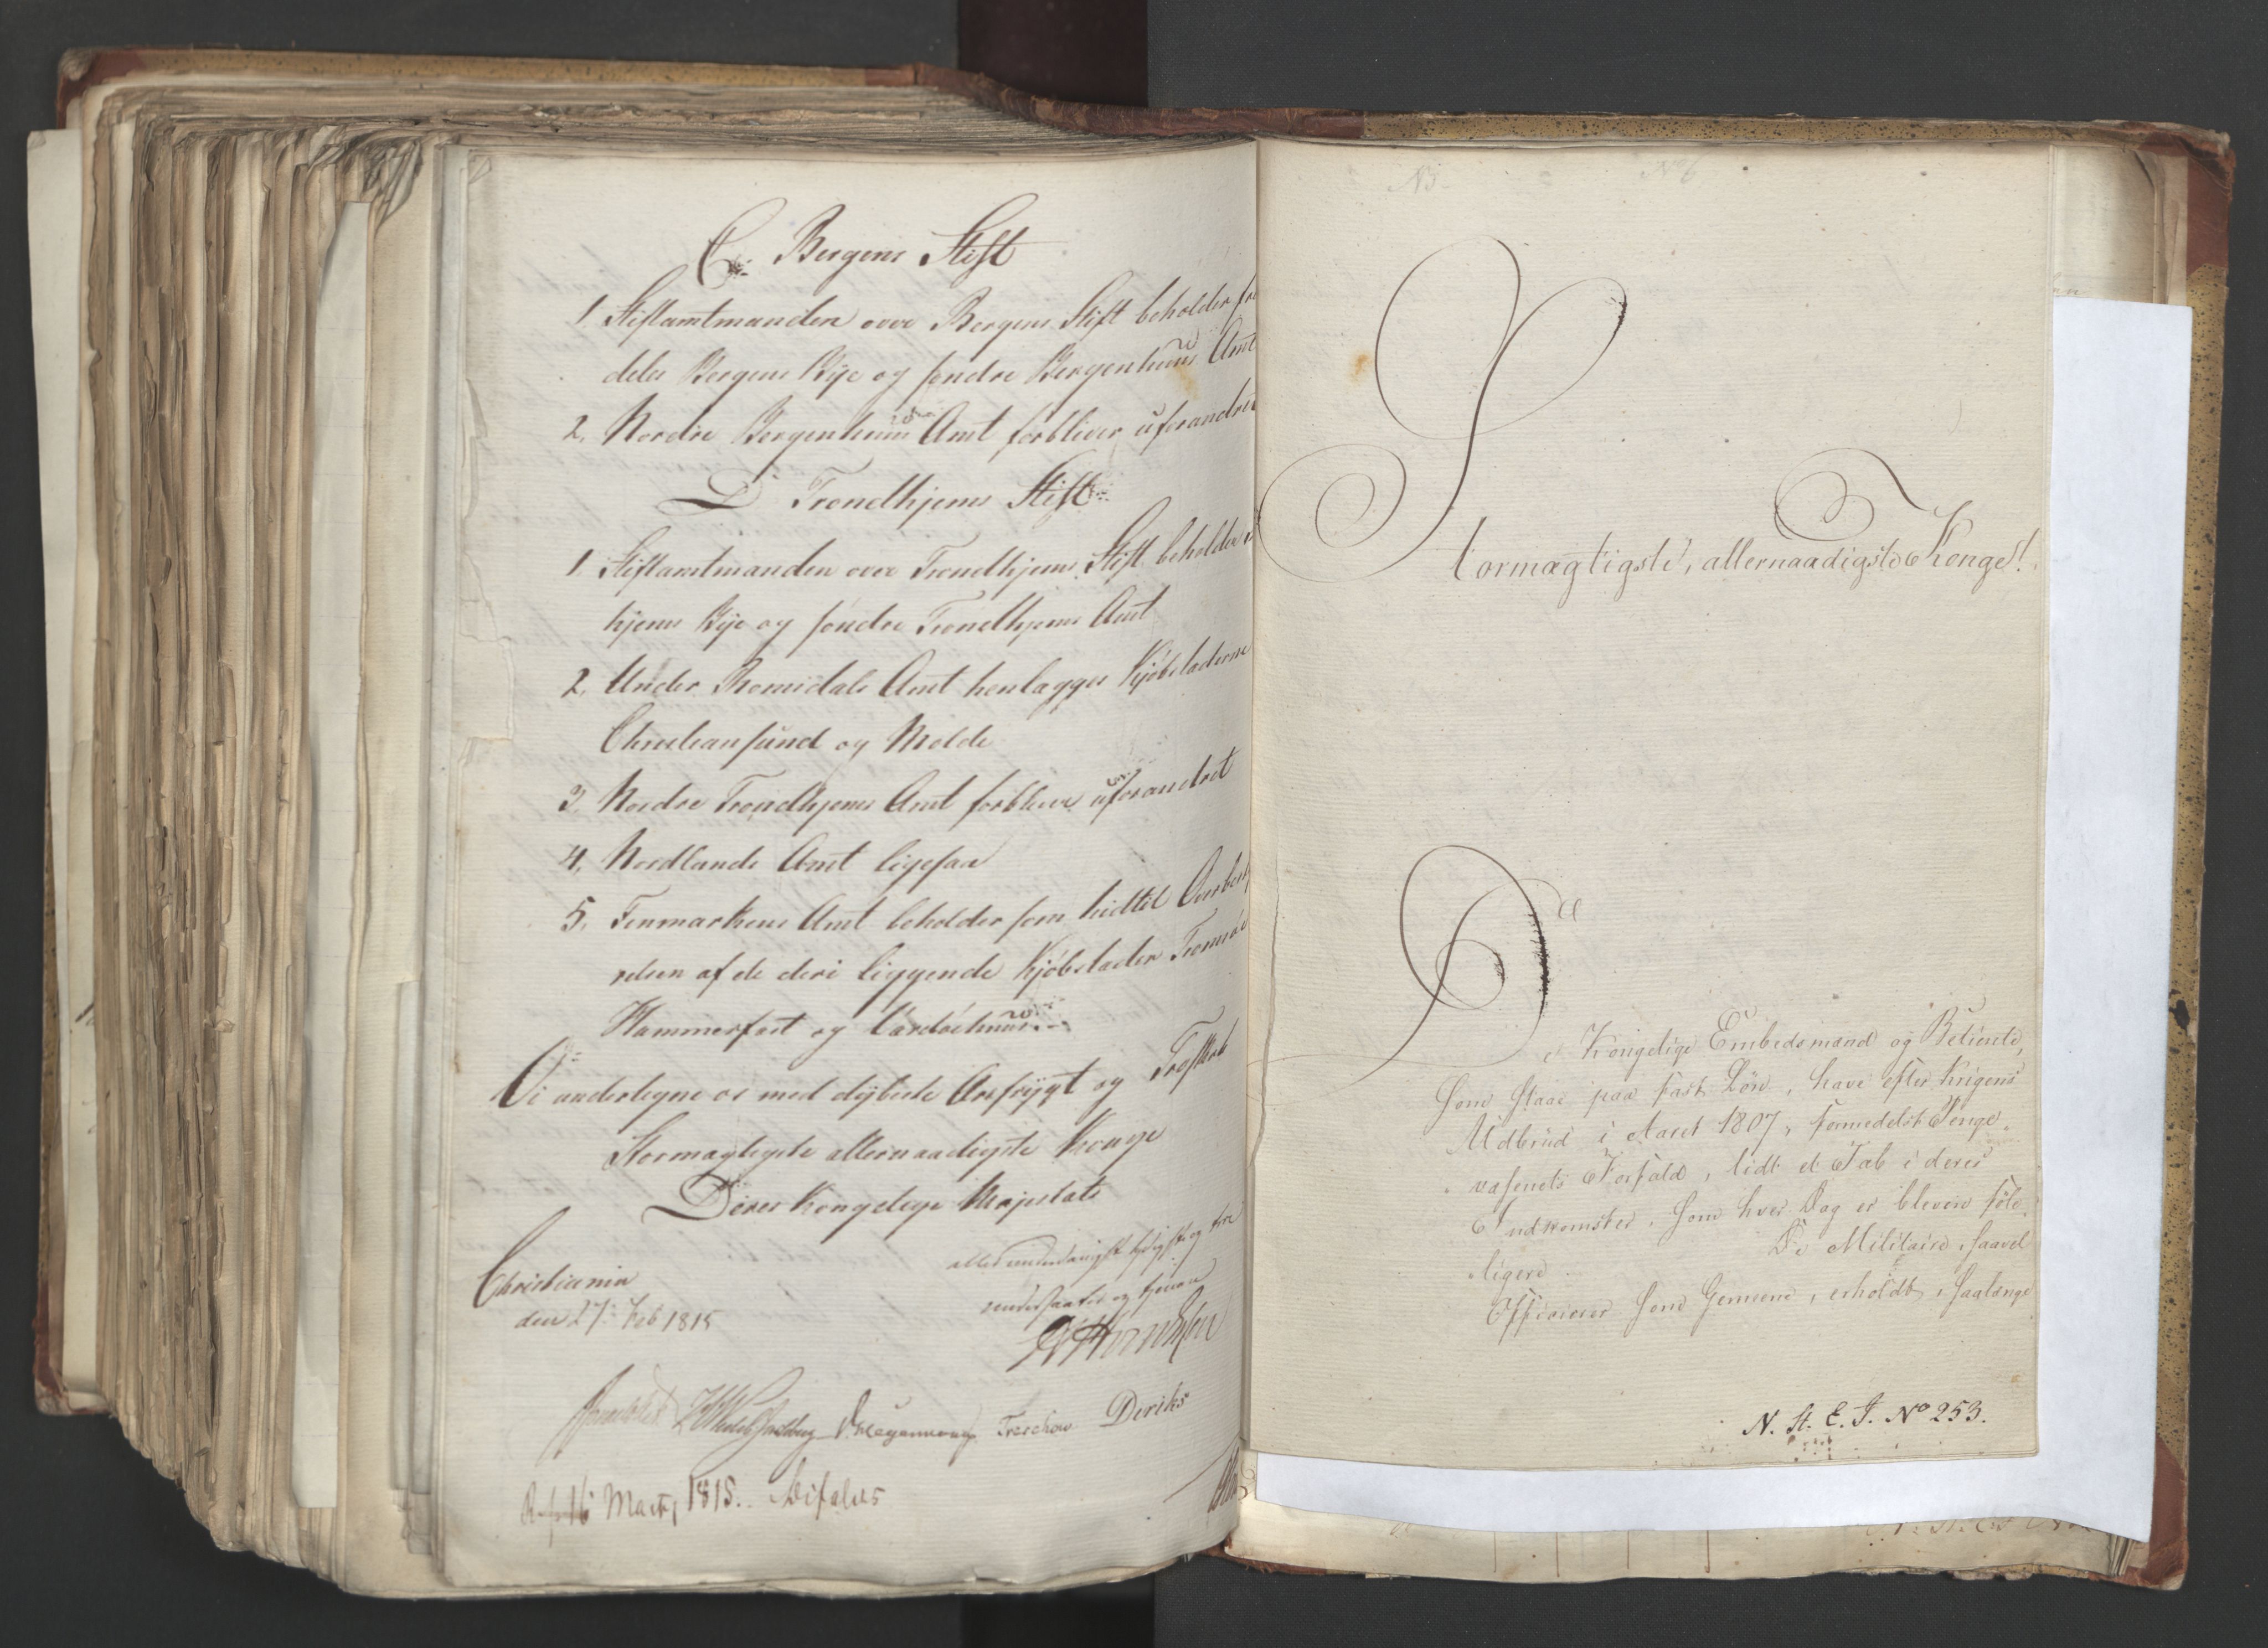 C. Bergens Stift
1. Stiftamtmanden over Bergens Stift beholder frem
deles Bergens Bye og søndre Bergenhuus Amt
2. Nordre Bergenhuus Amt forbliver uforandret
D Trondhjems Stift
1. Stiftamtmanden over Trondhjems Stift beholder
hjems Bye og søndre Trondhjems Amt
2. Under Romsdals Amt henlægges Kjøbstæderne
Christiansund og Molde
3. Nordre Trondhjems Amt forbliver uforandret
4. Nordlands Amt ligesaa
5. Finmarkens Amt beholder som hidtil Overbesty
relsen af de deri liggende Kjøbstæder Tromsøe
Hammerfest og Vardøehuus
Vi undertegne os med dybeste Ærefrygt og Troskab
Stormægtigste allernaadigste Konge
Deres Kongelige Majestæts
allerunderdanigst pligtigste og troe
undersaatter og tjenere
Christiania
den 27. Feb 1815
Sommerhielm
Treschow Diriks
Ref. 16 Marty 1815. Bifaldes
No 6
Stormægtigste, allernaadigste Konge!
De Kongelige Embedsmænd og Betiente,
som staae paa fast Løn, have efter Krigens
Udbrud i Aaret 1807, formedelst Penge-
væsenets Forfald, lidt et Tab i deres
Indkomster, som hver Dag er bleven føle-
ligere. De Militaire, saavel
Officierer som Gemene, erholdt, saalænge
N. St. E. J. No 253.